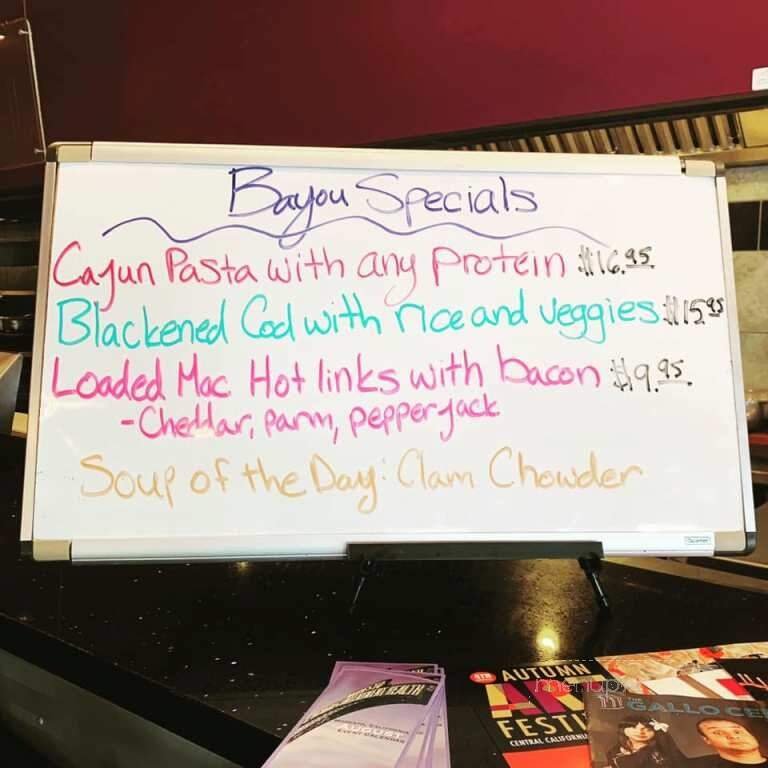 Bayou Specials
Cajun Pasta with any Protein $16.95
Blackened Cod with rice and veggies $15.95
Loaded Mac Hot links with bacon $9.95
-Cheddar, parm, pepperjack
Soup of the Day: Clam Chowder
AUTUMN
FESTI
CENTRAL CALIFORNI
GALLO CE
AUGUST
EVENT CALENDAR